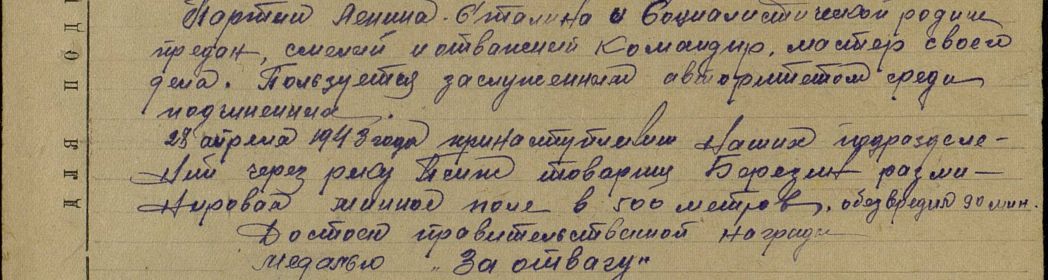 Партии Ленина-Сталина и Социалистической родине
предан, смелый и отважный командир, мастер своего
дела. Пользуется заслуженным авторитетом среди
подчиненных.
28 апреля 1943 года при наступлении наших подразделе-
ний через реку товарищ Березин разми-
нировал минное поле в 500 метров, обезвредил 90 мин.
Достоин правительственной награды
медалью "За отвагу"
ДЛЯ ПОД